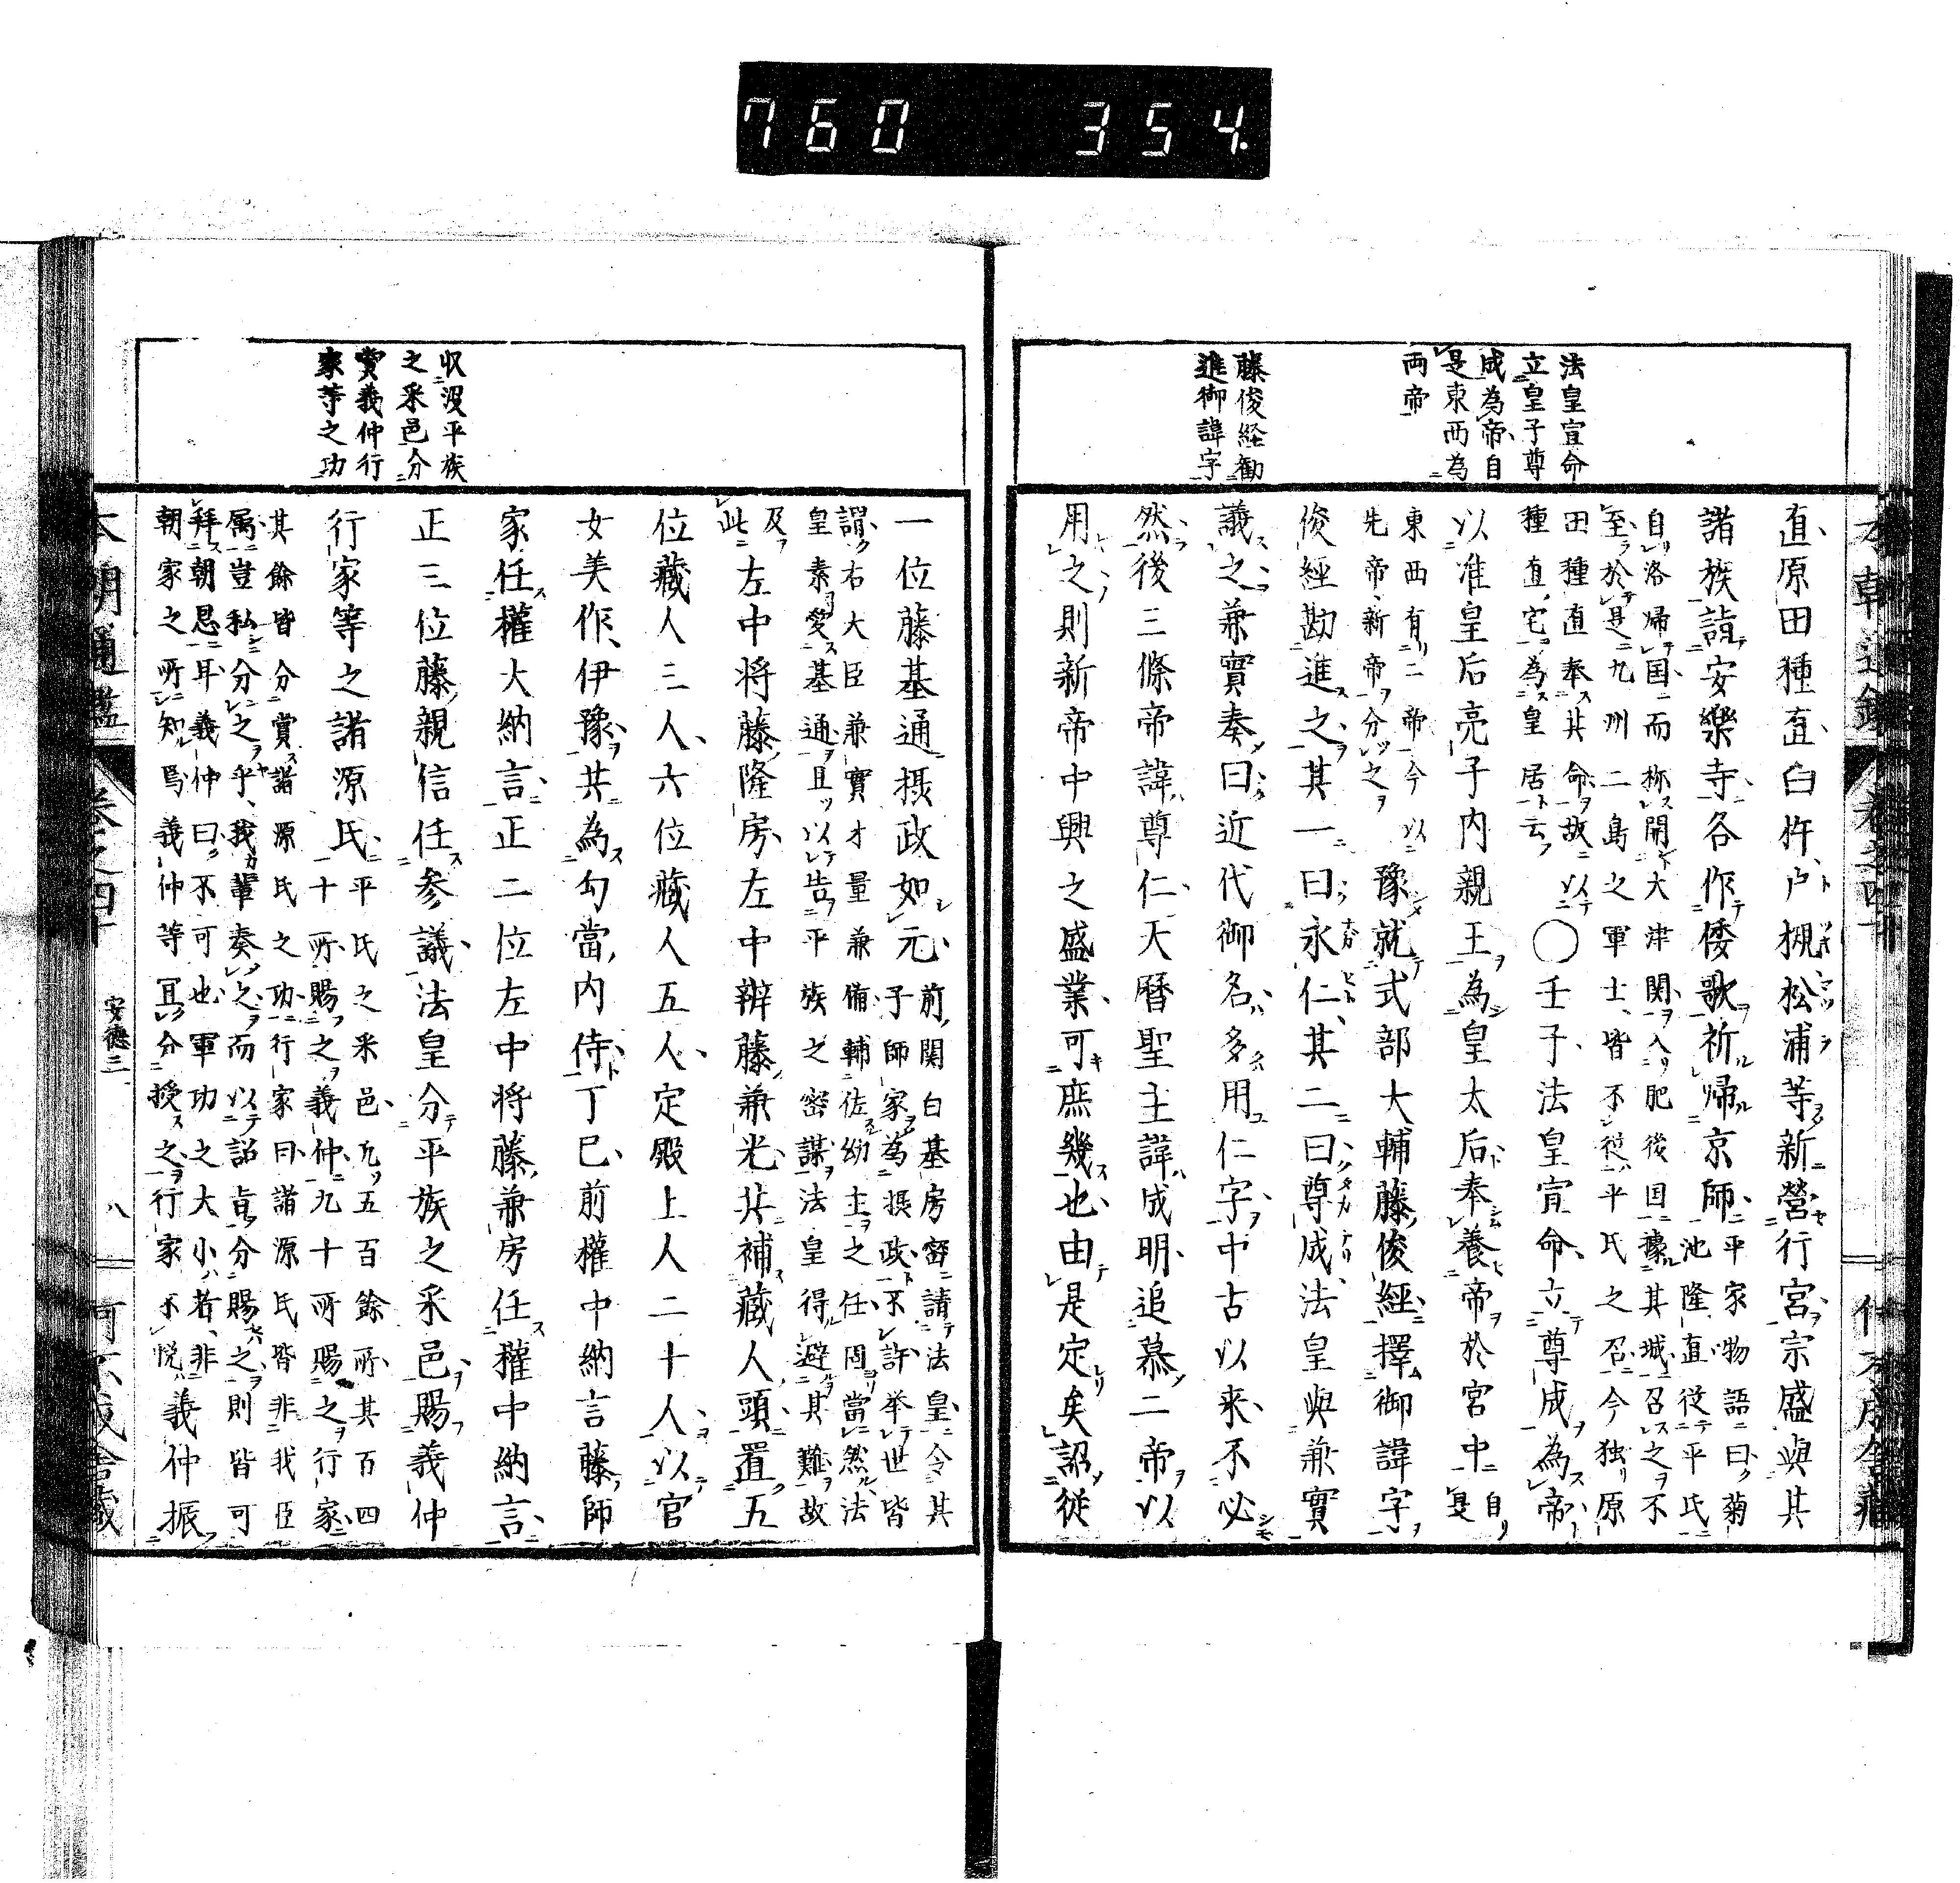 760 354.
法皇宣命
立皇子尊
成為帝自
是東西為
両帝
藤俊経勧
進御諱字
直原田種直臼杵戸槻松浦等新營行宮宗盛與其
諸族詣安樂寺各作倭歌祈帰京師
平家物語曰菊
池隆直従平氏
自洛帰国而称開大津関入肥後国據其城召之不
至於是九州二島之軍士皆不従平氏之召今独原
田種直奉其命故以
種直宅為皇居云
○壬子法皇宣命立尊成為帝
以准皇后亮子内親王為皇太后奉養帝於宮中
自
是
東西有二帝今以
先帝新帝分之
豫就式部大輔藤俊經擇御諱字
俊經勘進之其一曰永仁其二曰尊成法皇與兼實
議之兼實奏曰近代御名多用仁字中古以来不必
然後三條帝諱尊仁天暦聖主諱成明追慕二帝以
用之則新帝中興之盛業可庶幾也由是定矣詔従
本朝通鑑 卷之四十
収没平族
之采邑分
賞義仲行
家等之功
一位藤基通摂政如元
前関白基房密請法皇令其
子師家為摂政不許挙世皆
謂右大臣兼實才量兼備輔佐幼主之任固當然法
皇素愛基通且以告平族之密謀法皇得避其難故
及
此
左中将藤隆房左中辨藤兼光共補蔵人頭置五
位蔵人三人六位蔵人五人定殿上人二十人以官
女美作伊豫共為勾當内侍丁巳前權中納言藤師
家任權大納言正二位左中将藤兼房任權中納言
正三位藤親信任参議法皇分平族之采邑賜義仲
行家等之諸源氏
平氏之采邑九五百餘所其百四
十所賜之義仲九十所賜之行家
其餘皆分賞諸源氏之功行家曰諸源氏皆非我臣
属豈私分之乎我輩奏之而以詔旨分賜之則皆可
拜朝恩耳義仲曰不可也軍功之大小者非
朝家之所知焉義仲等冝分授之行家不悦
義仲振
本朝通鑑 卷之四十 安德三 八